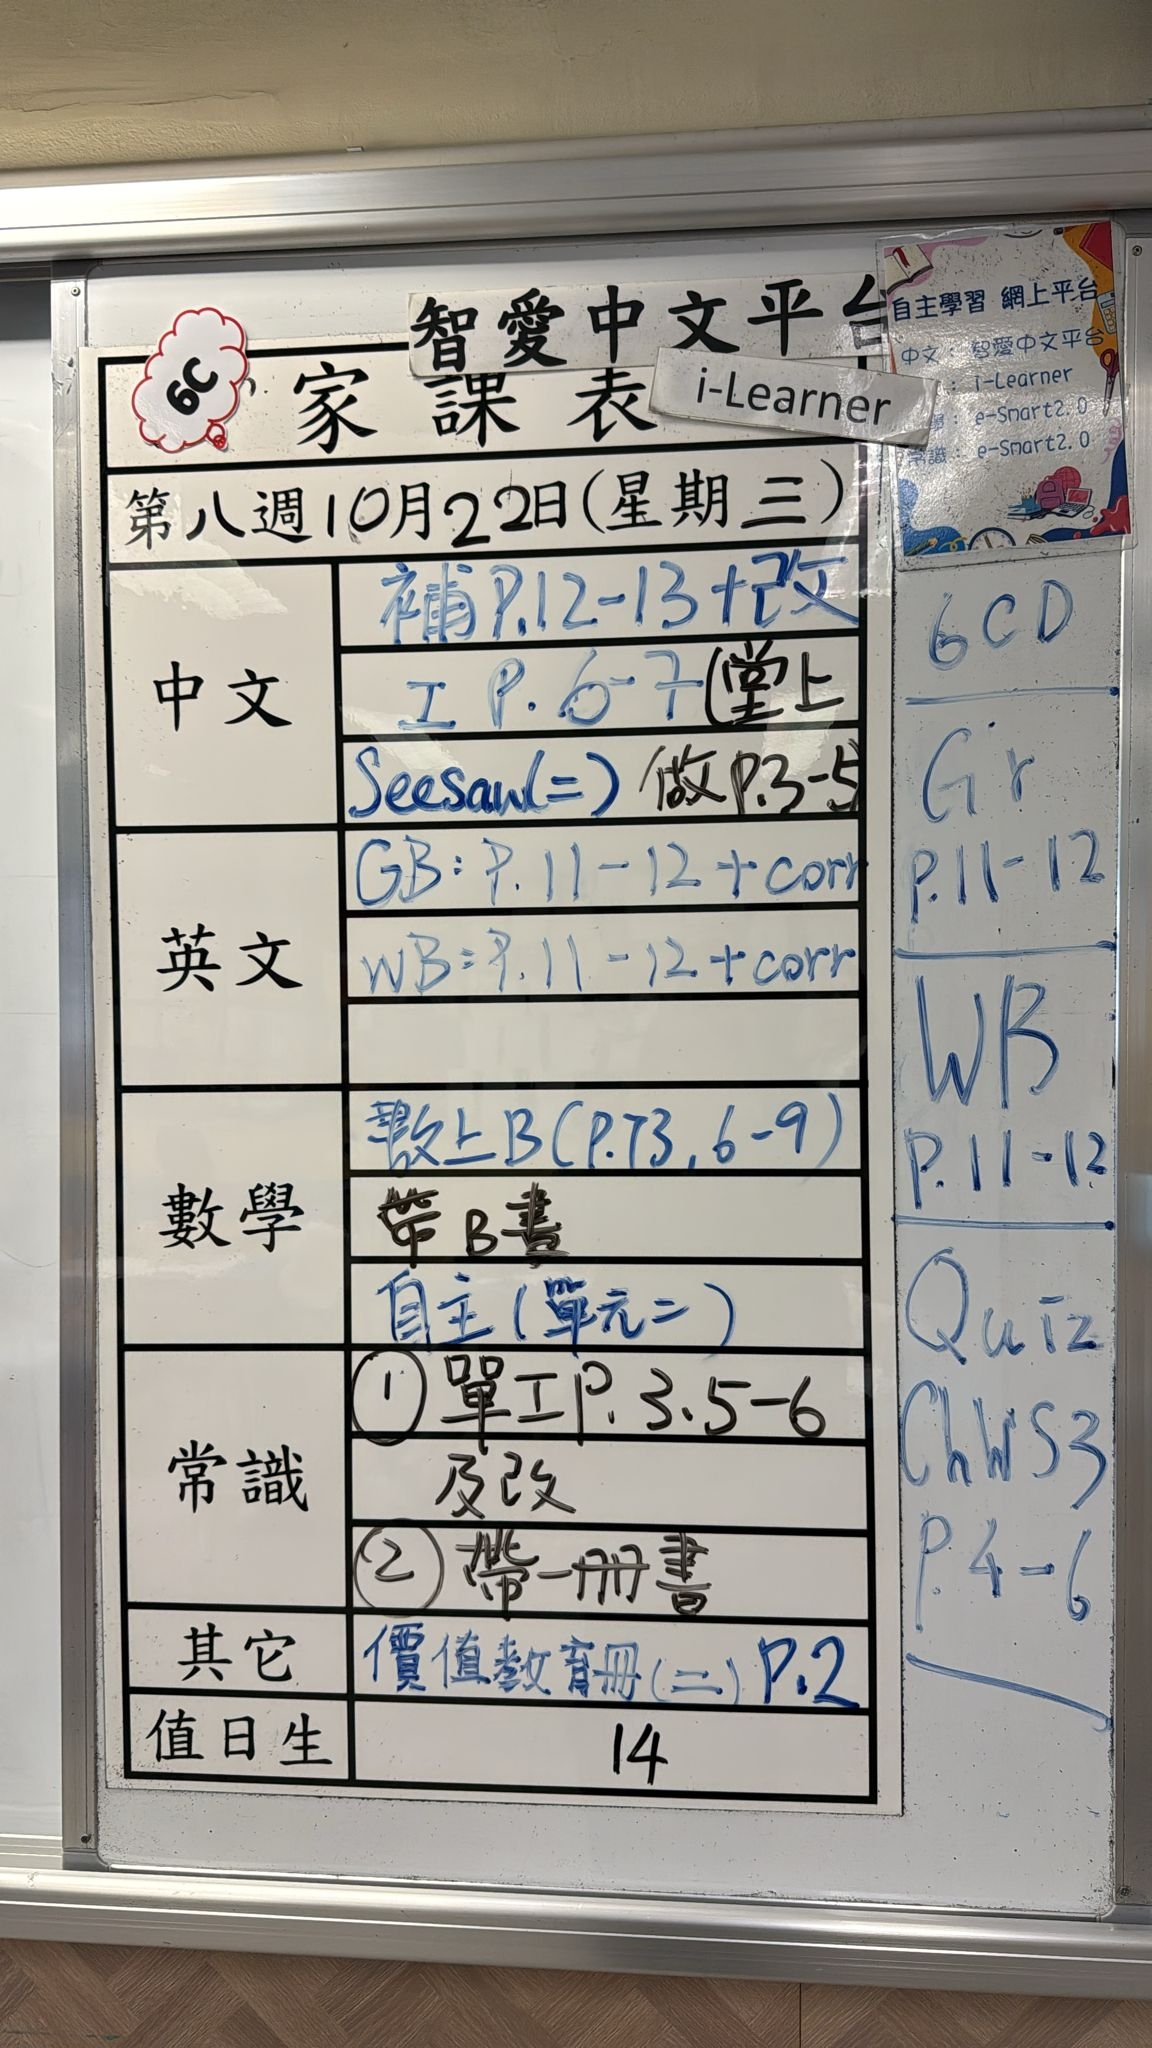 智愛中文平台
6C
家課表
i-Learner
第八週10月22日(星期三)
中文
補P.12-13+改
工 P.6-7(堂上
Seesaw(二) 做P.3-5
英文
GB:P.11-12+corr
WB:P.11-12+corr
數學
數上B(P.73,6-9)
帶B書
自主(單元二)
常識
① 單工P.3、5-6
及改
② 帶一冊書
其它
價值教育冊(二) P.2
值日生
14
自主學習 網上平台
中文:智愛中文平台
: i-Learner
: e-Smart2.0
常識: e-Smart2.0
6CD
Gr
P.11-12
WB
P.11-12
Quiz
ChWS3
P.4-6